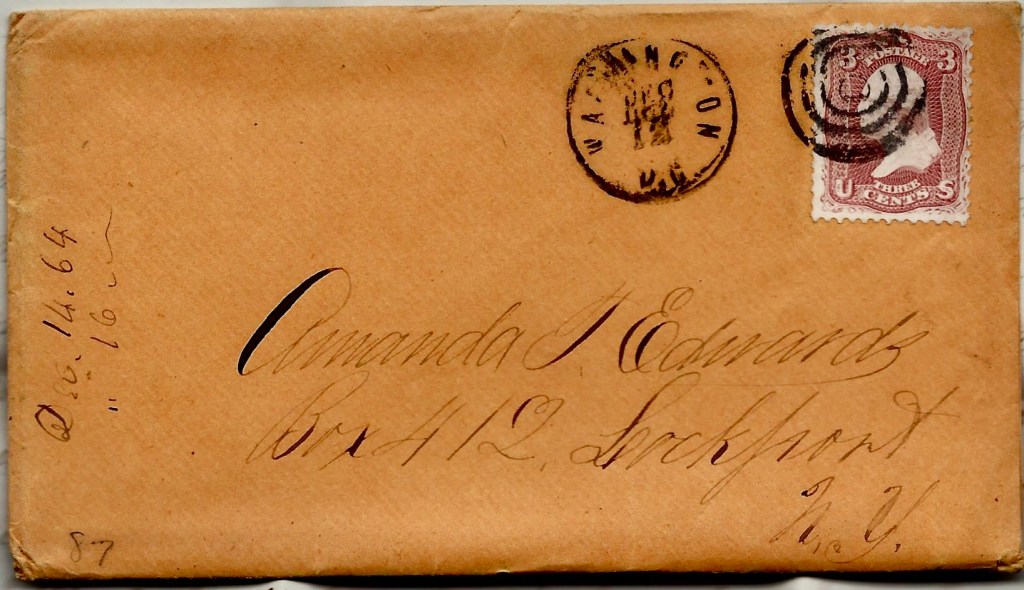 WASHINGTON
DEC
D.C.
3 POSTAGE 3
U THREE S
CENTS
Amanda T. Edwards
Box 412, Lockport
N.Y.
Dec. 14. 64
" 16
87